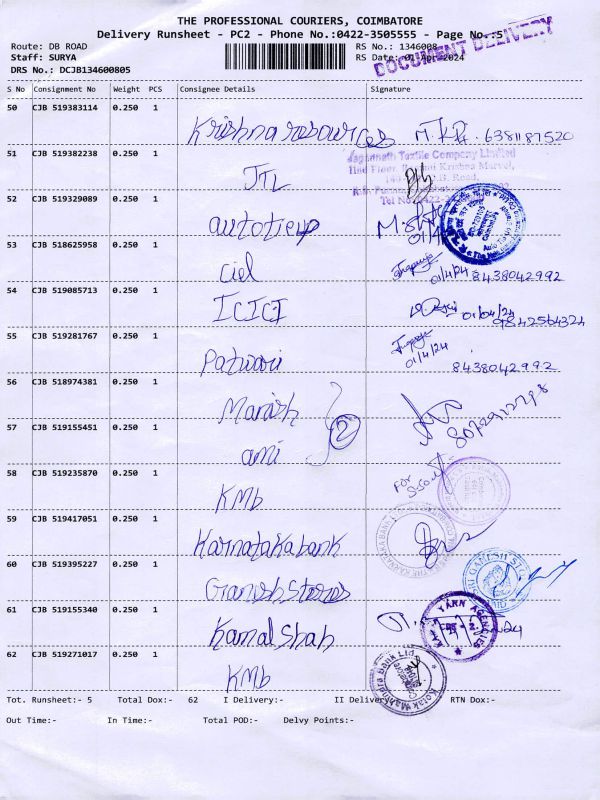 THE PROFESSIONAL COURIERS, COIMBATORE
Delivery Runsheet - PC2 - Phone No.:0422-3505555 - Page No.:5
Route: DB ROAD
RS No.: 1346008
Staff: SURYA
RS Date: 01-Apr-2024
DOCUMENT DELIVERY
DRS No.: DCJB134600805
S No Consignment No Weight PCS Consignee Details Signature
50 CJB 519383114 0.250 1
Krishna resources 6381187520
51 CJB 519382238 0.250 1
Jagannath Textile Company Limited
JTL
52 CJB 519329089 0.250 1
autotieup
53 CJB 518625958 0.250 1
Ciel 01/4/24 8438042992
54 CJB 519085713 0.250 1
ICICI 01/04/24
9842564324
55 CJB 519281767 0.250 1
Patwari 01/4/24
8438042992
56 CJB 518974381 0.250 1
Manish
2
57 CJB 519155451 0.250 1
ami
58 CJB 519235870 0.250 1
For
KMb
59 CJB 519417051 0.250 1
Karnataka bank
60 CJB 519395227 0.250 1
Ganesh Stores
61 CJB 519155340 0.250 1
YARN AGENCIES
Kamal Shah
62 CJB 519271017 0.250 1
Kotak Mahindra Bank Ltd
KMb
Tot. Runsheet:- 5 Total Dox:- 62 I Delivery:- II Delivery:- RTN Dox:-
Out Time:- In Time:- Total POD:- Delvy Points:-